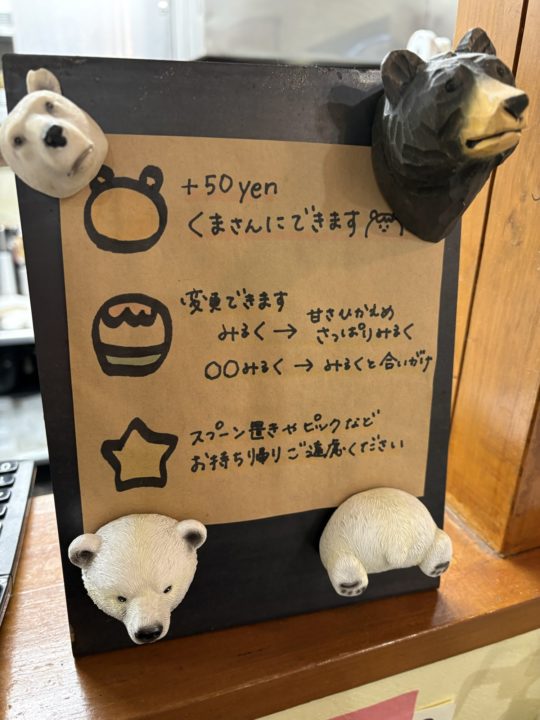 +50yen
くまさんにできます
変更できます
みるく→ 甘さひかえめ
さっぱりみるく
〇〇みるく → みるくと合いがけ
スプーン置きやピックなど
お持ち帰りご遠慮ください